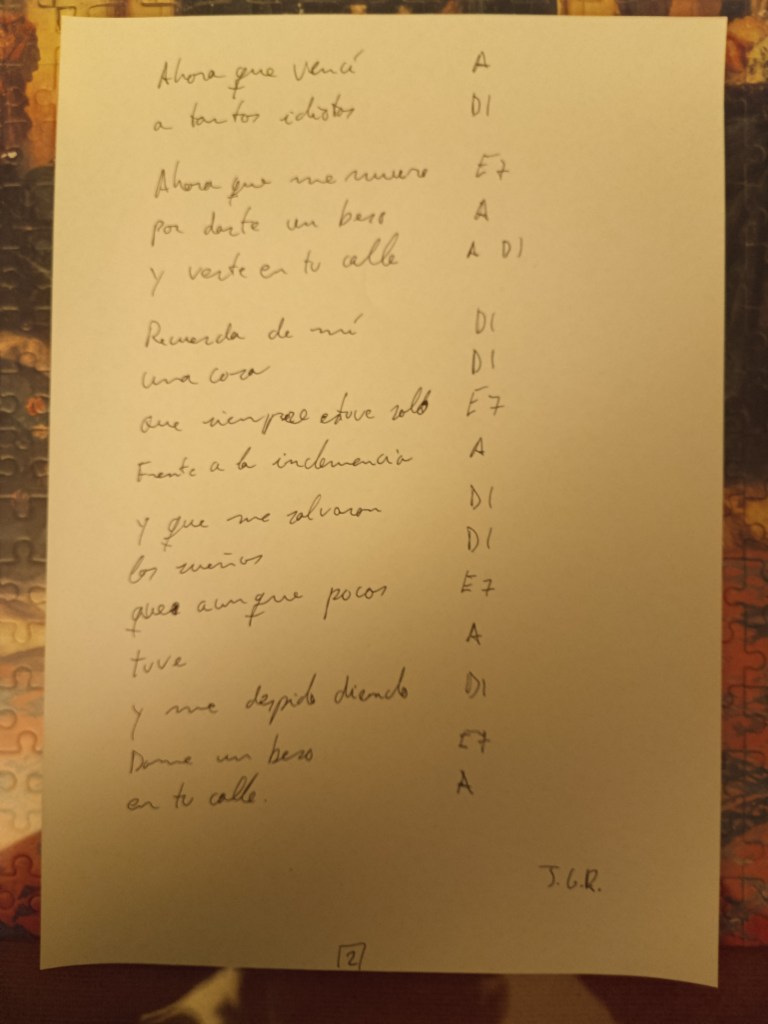 Ahora que vencí A
a tantos idiotas D1
Ahora que me muero E7
por darte un beso A
y verte en tu calle A D1
Recuerda de mí D1
una cosa D1
que siempre estuve solo E7
Frente a la inclemencia A
y que me salvaron D1
los sueños D1
que aunque pocos E7
tuve A
y me despido diciendo D1
Dame un beso E7
en tu calle. A
J.G.R.
2